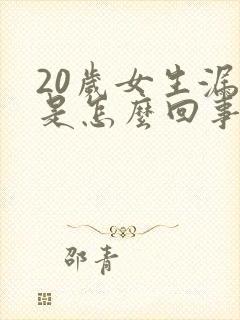 20歲女生漏
是怎麼回事
邵青